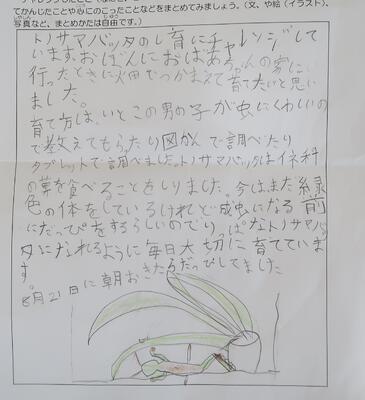 てかんじたことや心にのこったことなどをまとめてみましょう。(文、や絵(イラスト)、
写真など、まとめかたは自由です。)
じゆう
トノサマバッタのし育にチャレンジして
います。おばんにおばあちゃんの家に
行ったときに畑でつかまえて育てたいと思い
ました。
育て方は、いとこの男の子が虫にくわしいの
で教えてもらったり図かんで調べたり
タブレットで調べました。トノサマバッタはイネ科
の葉を食べることをしりました。今はまだ緑
色の体をしているけれど成虫になる前
にだっぴをするらしいのでりっぱなトノサマバッ
タになれるように毎日大切に育てていま
す。
8月21日に朝おきたらだっぴしてました